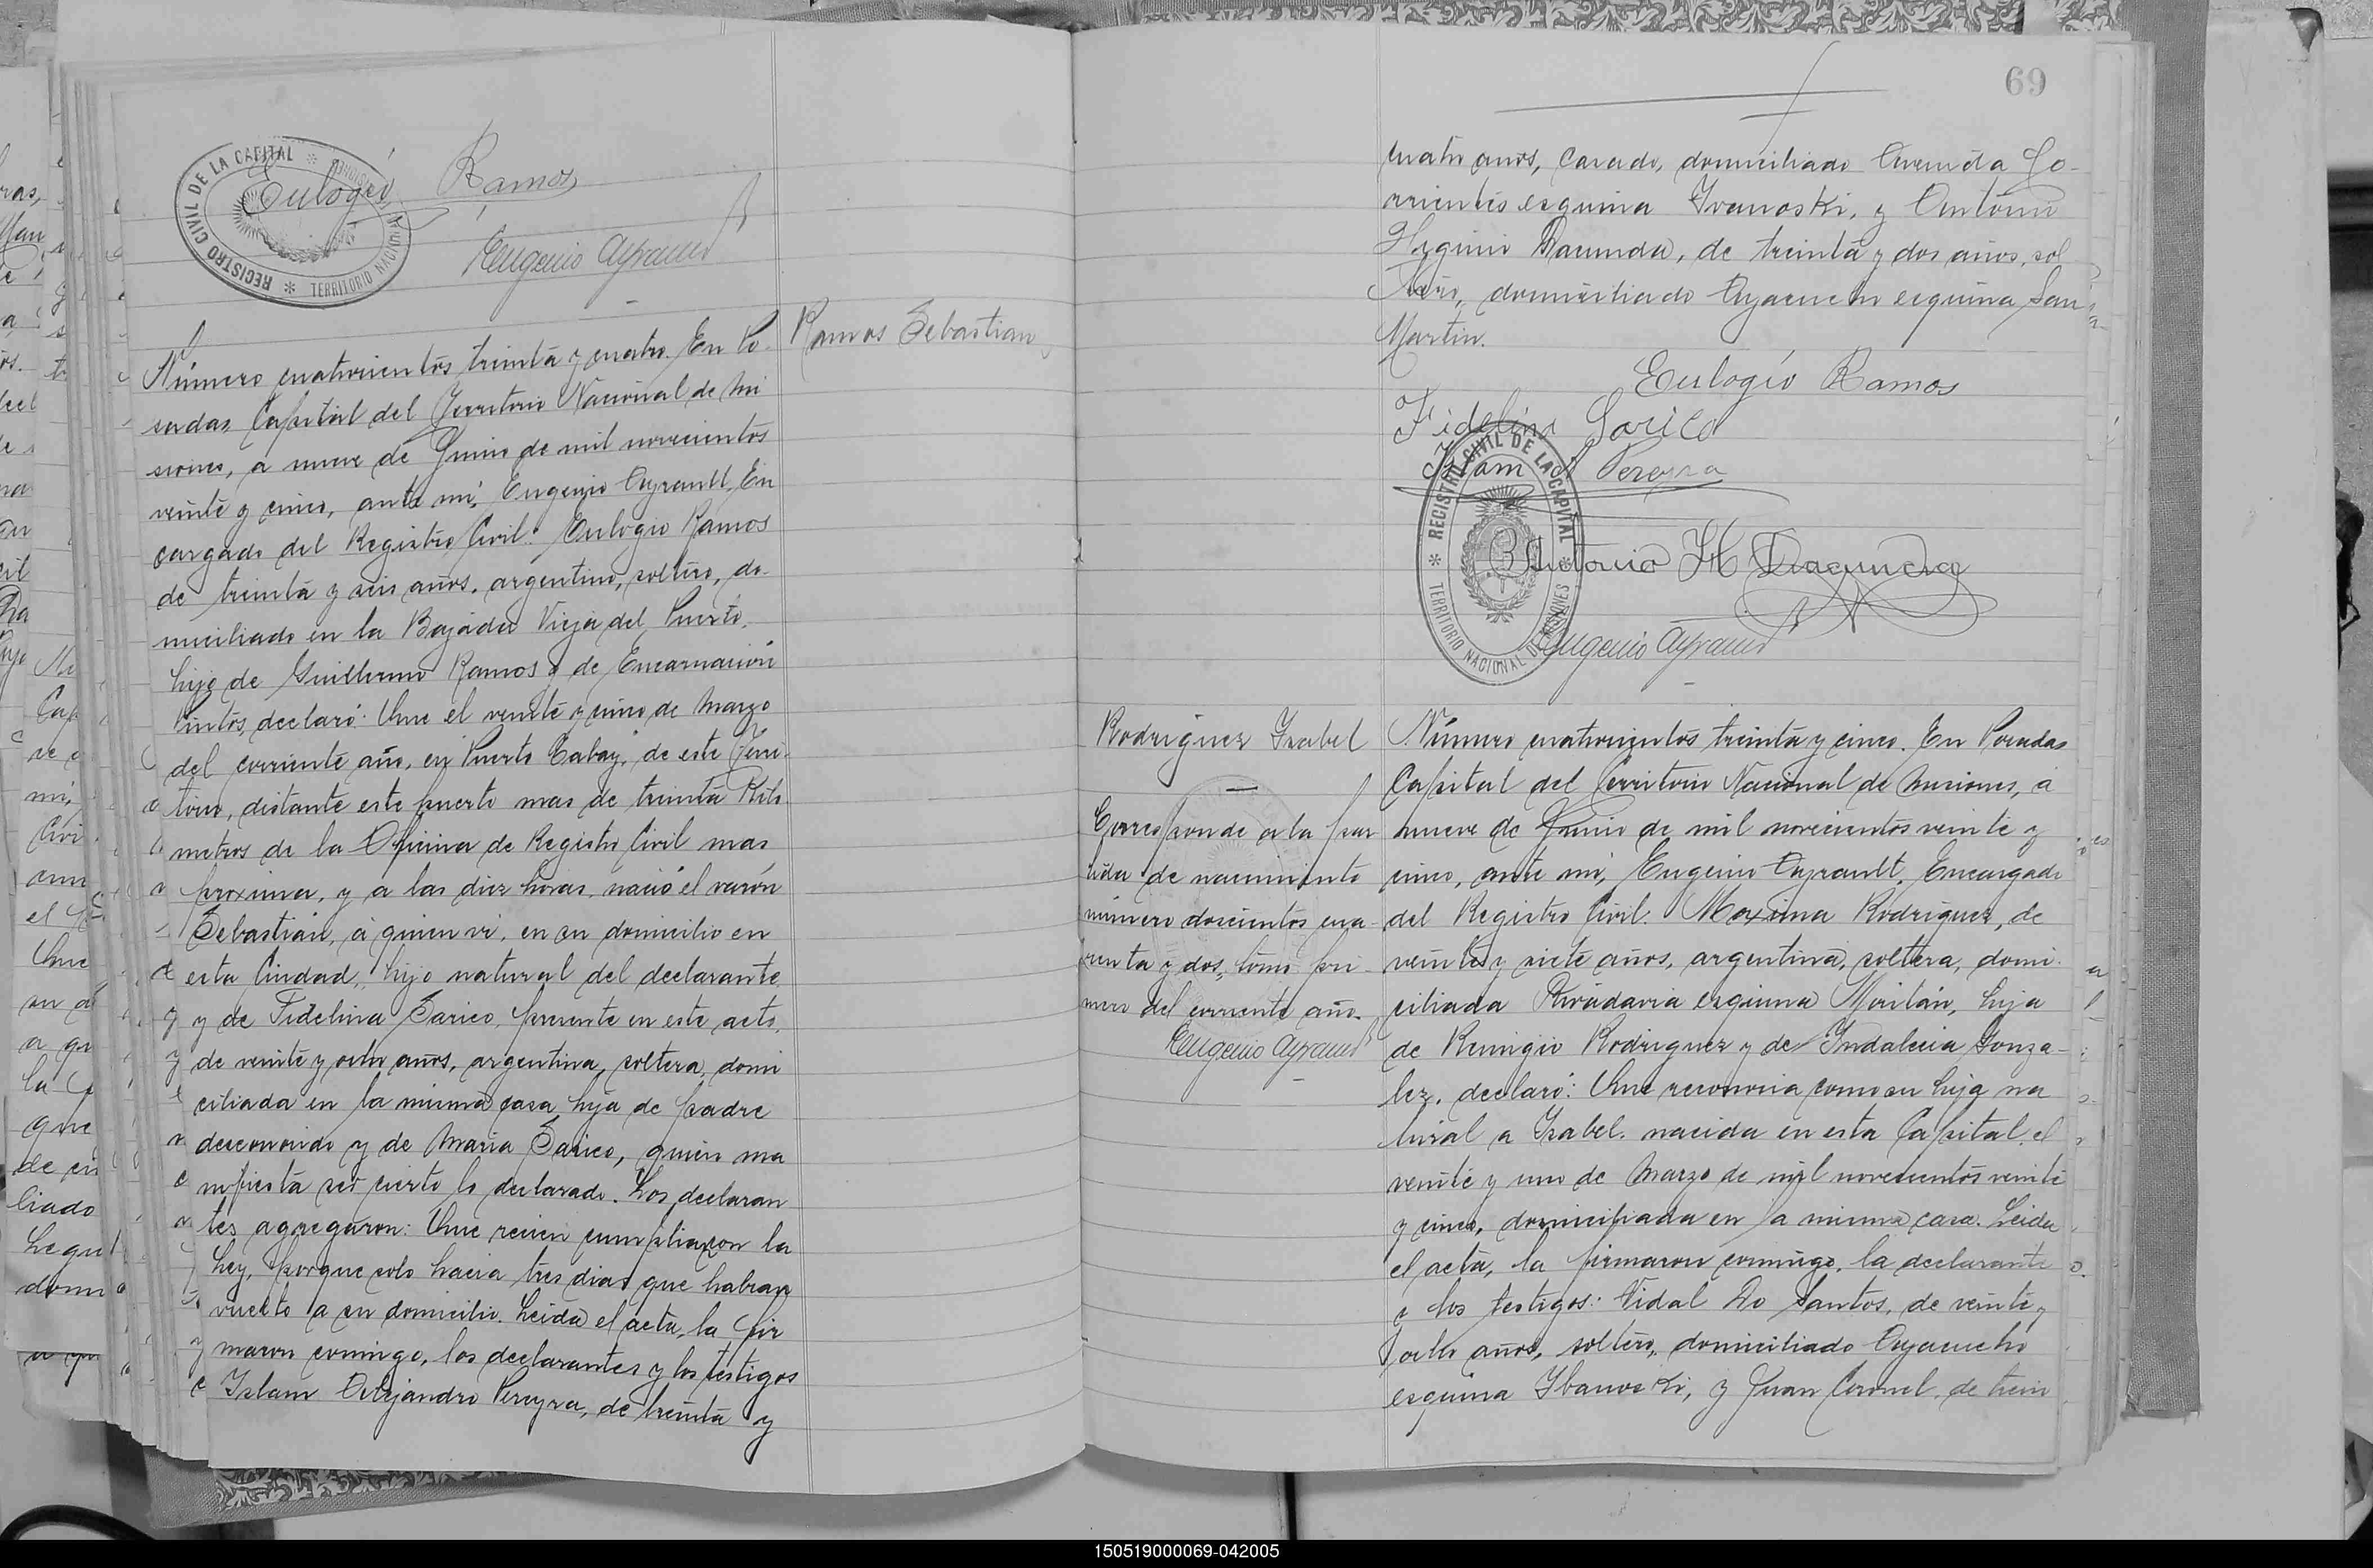 REGISTRO CIVIL DE LA CAPITAL * TERRITORIO NACIONAL
Eulogio Ramos
Eugenio Ayrault
Ramos Sebastian
Número cuatrocientos treinta y cuatro. En Po-
sadas Capital del Territorio Nacional de Mi
siones, a nueve de Junio de mil novecientos
veinte y cinco, ante mi, Eugenio Ayrault, En
cargado del Registro Civil: Eulogio Ramos
de treinta y seis años, argentino, soltero, do-
miciliado en la Bajada Vieja del Puerto,
hijo de Guillermo Ramos y de Encarnación
Pintos, declaró: Que el veinte y cinco de Marzo
del corriente año, en Puerto Tabay, de este Terri-
torio, distante este puerto mas de treinta Kilo
metros de la Oficina de Registro Civil mas
proxima, y a las diez horas, nació el varón
Sebastián, á quien vi, en su domicilio en
esta Ciudad, hijo natural del declarante
y de Fidelina Sarico, presente en este acto,
de veinte y ocho años, argentina, soltera, domi
ciliada en la misma casa, hija de padre
desconocido y de Maria Sarico, quien ma
nifiesta ser cierto lo declarado. Los declaran
tes agregaron: Que recien cumpliaron la
Ley, porque solo hacia tres dias que habian
vuelto a su domicilio. Leida el acta, la fir
maron conmigo, los declarantes y los testigos
Islam Alejandro Pereyra, de treinta y
69
cuatro años, casado, domiciliado Avenida Co-
rrientes esquina Ivanoski, y Antonio
Higinio Dacunda, de treinta y dos años, sol
tero, domiciliado Ayacucho esquina San
Martin.
Eulogio Ramos
Fidelina Sarico
Islam A Pereyra
REGISTRO CIVIL DE LA CAPITAL * TERRITORIO NACIONAL DE MISIONES *
Antonio H Dacunda
Eugenio Ayrault
Rodriguez Isabel
Corresponde a la par
tida de nacimiento
número doscientos cua-
renta y dos, tomo pri-
mero del corriente año.
Eugenio Ayrault
Número cuatrocientos treinta y cinco. En Posadas
Capital del Territorio Nacional de Misiones, á
nueve de Junio de mil novecientos veinte y
cinco, ante mi, Eugenio Ayrault, Encargado
del Registro Civil: Maxima Rodriguez, de
veinte y siete años, argentina, soltera, domi-
ciliada Rivadavia esquina Maitán, hija
de Remigio Rodriguez y de Indalecia Gonza-
lez, declaró: Que reconocia como su hija na
tural a Isabel, nacida en esta Capital, el
veinte y uno de Marzo de mil novecientos veinte
y cinco, domiciliada en la misma casa. Leida
el acta, la firmaron conmigo, la declarante
y los testigos: Vidal Do Santos, de veinte y
ocho años, soltero, domiciliado Ayacucho
esquina Ybanoski, y Juan Coronel, de trein
150519000069-042005